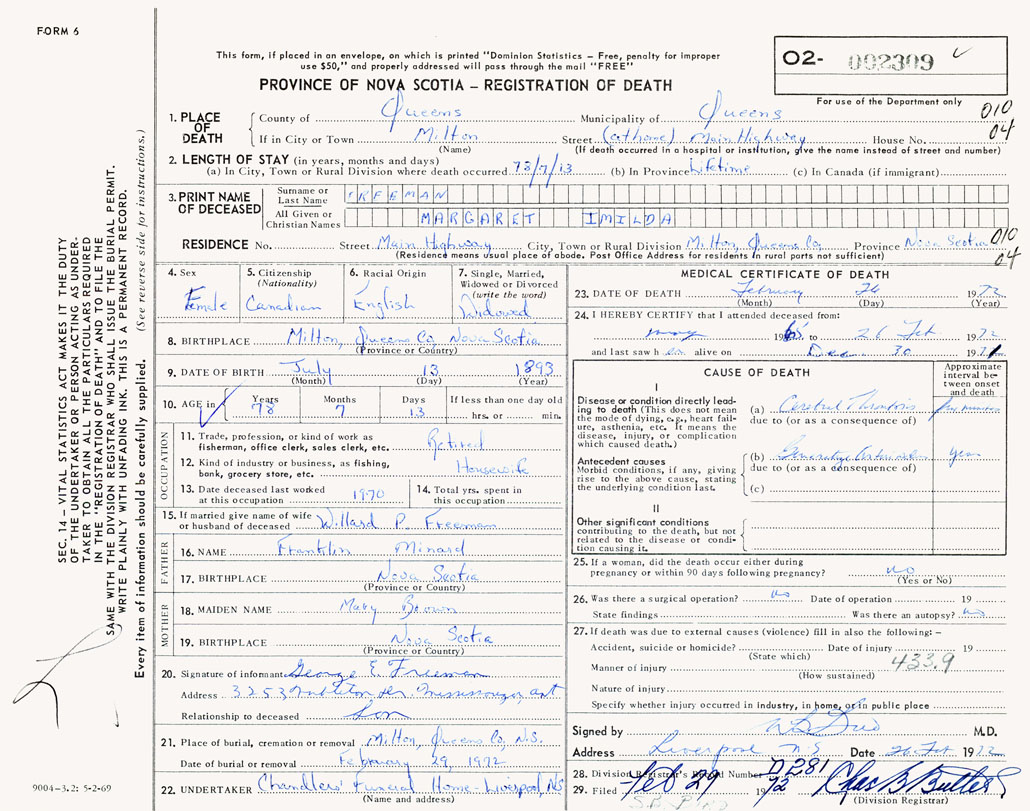 FORM 6
This form, if placed in an envelope, on which is printed "Dominion Statistics – Free, penalty for improper
use $50," and properly addressed will pass through the mail "FREE"
PROVINCE OF NOVA SCOTIA – REGISTRATION OF DEATH
O2- 002309
For use of the Department only
010
04
1. PLACE OF DEATH
County of Queens Municipality of Queens
If in City or Town Milton Street (at home) Main Highway House No.
(Name) (If death occurred in a hospital or institution, give the name instead of street and number)
2. LENGTH OF STAY (in years, months and days)
(a) In City, Town or Rural Division where death occurred 78/7/13 (b) In Province Lifetime (c) In Canada (if immigrant)
3. PRINT NAME OF DECEASED
Surname or Last Name FREEMAN
All Given or Christian Names MARGARET IMILDA
RESIDENCE No. Street Main Highway City, Town or Rural Division Milton, Queens Co. Province Nova Scotia 010
(Residence means usual place of abode. Post Office Address for residents in rural parts not sufficient) 04
4. Sex
Female
5. Citizenship
(Nationality)
Canadian
6. Racial Origin
English
7. Single, Married,
Widowed or Divorced
(write the word)
Widowed
8. BIRTHPLACE Milton, Queens Co, Nova Scotia
(Province or Country)
9. DATE OF BIRTH July 13 1893
(Month) (Day) (Year)
10. AGE in
Years Months Days If less than one day old
78 7 13 hrs. or min.
OCCUPATION
11. Trade, profession, or kind of work as
fisherman, office clerk, sales clerk, etc. Retired
12. Kind of industry or business, as fishing,
bank, grocery store, etc. Housewife
13. Date deceased last worked
at this occupation 1970
14. Total yrs. spent in
this occupation
15. If married give name of wife
or husband of deceased Willard P. Freeman
FATHER
16. NAME Franklin Minard
17. BIRTHPLACE Nova Scotia
(Province or Country)
MOTHER
18. MAIDEN NAME Mary Brown
19. BIRTHPLACE Nova Scotia
(Province or Country)
20. Signature of informant George E Freeman
Address 3253
Relationship to deceased Son
21. Place of burial, cremation or removal Milton, Queens Co, N.S.
Date of burial or removal February 29, 1972
22. UNDERTAKER Chandlers' Funeral Home - Liverpool, NS
(Name and address)
MEDICAL CERTIFICATE OF DEATH
23. DATE OF DEATH February 26 1972
(Month) (Day) (Year)
24. I HEREBY CERTIFY that I attended deceased from:
May 19 to 26 Feb. 1972
and last saw h alive on Dec. 30 1971
CAUSE OF DEATH
Approximate
interval be-
tween onset
and death
I
Disease or condition directly lead-
ing to death (This does not mean
the mode of dying, e.g., heart fail-
ure, asthenia, etc. It means the
disease, injury, or complication
which caused death.)
(a) Cerebral
due to (or as a consequence of)
Antecedent causes
Morbid conditions, if any, giving
rise to the above cause, stating
the underlying condition last.
(b)
due to (or as a consequence of)
(c)
II
Other significant conditions
contributing to the death, but not
related to the disease or condi-
tion causing it.
25. If a woman, did the death occur either during
pregnancy or within 90 days following pregnancy? no
(Yes or No)
26. Was there a surgical operation? no Date of operation 19
State findings Was there an autopsy? no
27. If death was due to external causes (violence) fill in also the following: –
Accident, suicide or homicide? Date of injury 19
(State which)
433.9
Manner of injury
(How sustained)
Nature of injury
Specify whether injury occurred in industry, in home, or in public place
Signed by M.D.
Address Liverpool N.S Date 26 Feb 1972
28. Division Registrar's Record Number 281
29. Filed Feb 29 72 Chas B Butler
(Division Registrar)
SEC. 14 – VITAL STATISTICS ACT MAKES IT THE DUTY
OF THE UNDERTAKER OR PERSON ACTING AS UNDER-
TAKER TO OBTAIN ALL THE PARTICULARS REQUIRED
IN THE "REGISTRATION OF DEATH" AND TO FILE THE
SAME WITH THE DIVISION REGISTRAR WHO SHALL ISSUE THE BURIAL PERMIT.
WRITE PLAINLY WITH UNFADING INK. THIS IS A PERMANENT RECORD.
Every item of information should be carefully supplied. (See reverse side for instructions.)
9004-3.2: 5-2-69